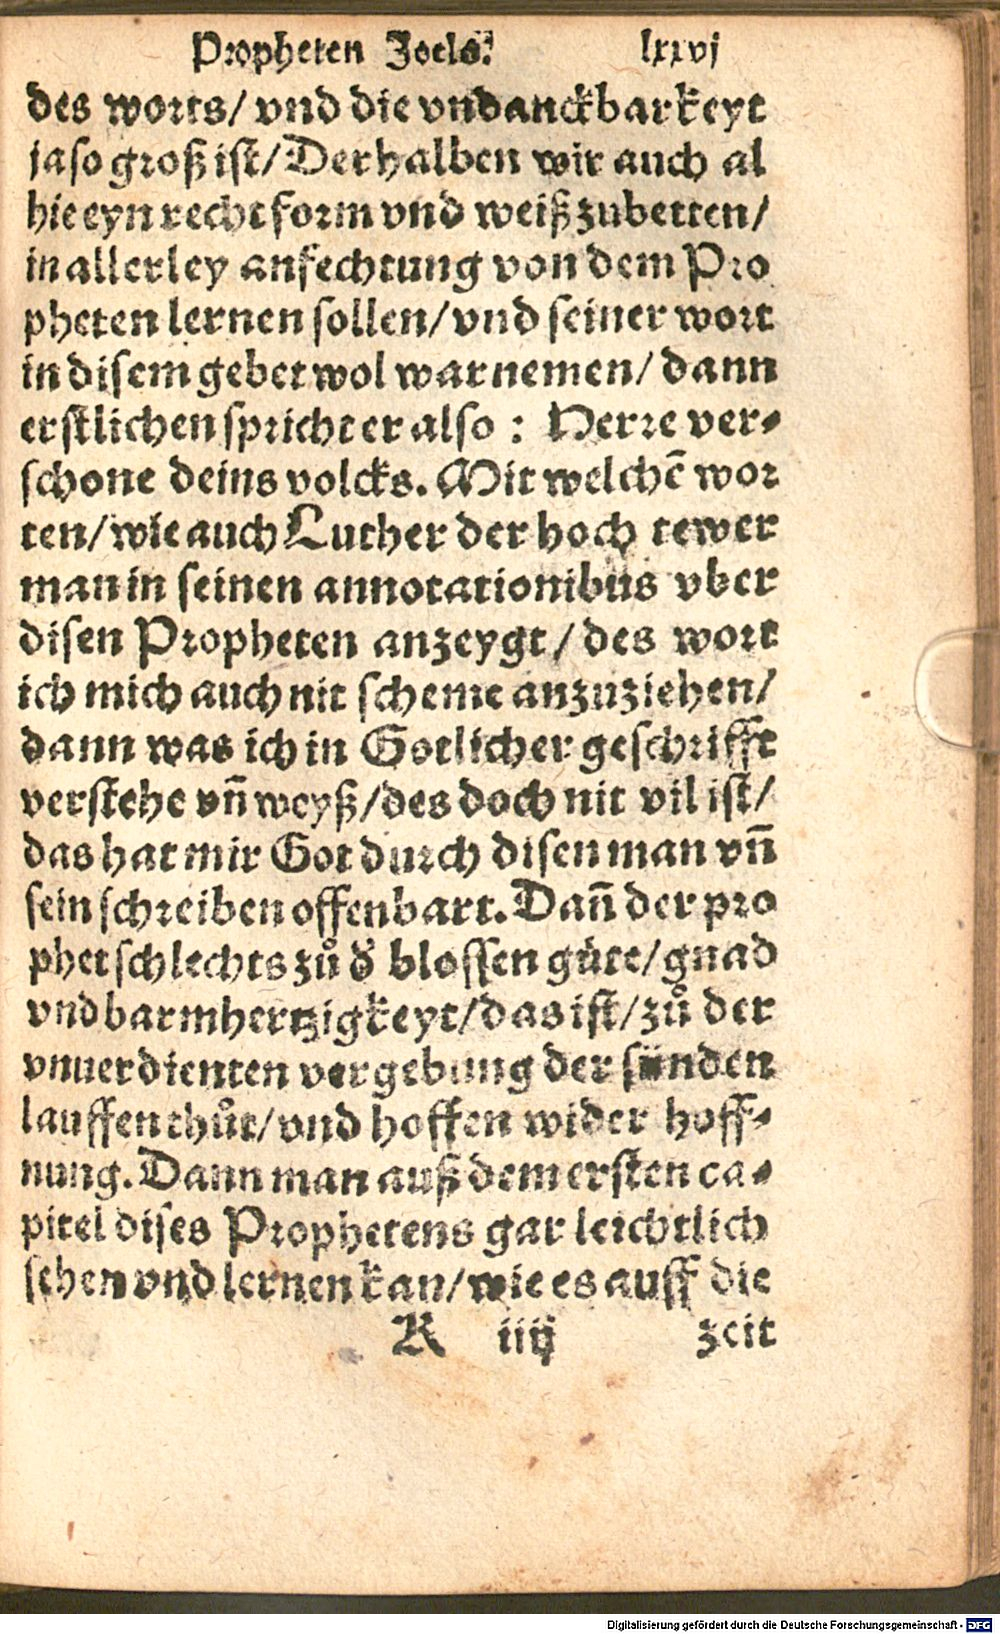 Propheten Joels. lxxvj
des worts/ vnd die vndanckbarkeyt
ja so groß ist/ Derhalben wir auch al
hie eyn recht form vnd weiß zubetten/
in allerley anfechtung von dem Pro
pheten lernen sollen/ vnd seiner wort
in disem gebet wol warnemen/ dann
erstlichen spricht er also : Herre ver⸗
schone deins volcks. Mit welchẽ wor
ten/ wie auch Luther der hoch tewer
man in seinen annotationibus vber
disen Propheten anzeygt/ des wort
ich mich auch nit scheme anzuziehen/
dann was ich in Gotlicher geschrifft
verstehe vñ weyß/ des doch nit vil ist/
das hat mir Got durch disen man vñ
sein schreiben offenbart. Dañ der pro
phet schlechts zů d̕ blossen gůte/ gnad
vnd barmhertzigkeyt/ das ist/ zů der
vnuerdienten vergebung der sünden
lauffen thůt/ vnd hoffen wider hoff⸗
nung. Dann man auß dem ersten ca⸗
pitel dises Prophetens gar leichtlich
sehen vnd lernen kan/ wie es auff die
K iiij zeit
Digitalisierung gefördert durch die Deutsche Forschungsgemeinschaft - DFG